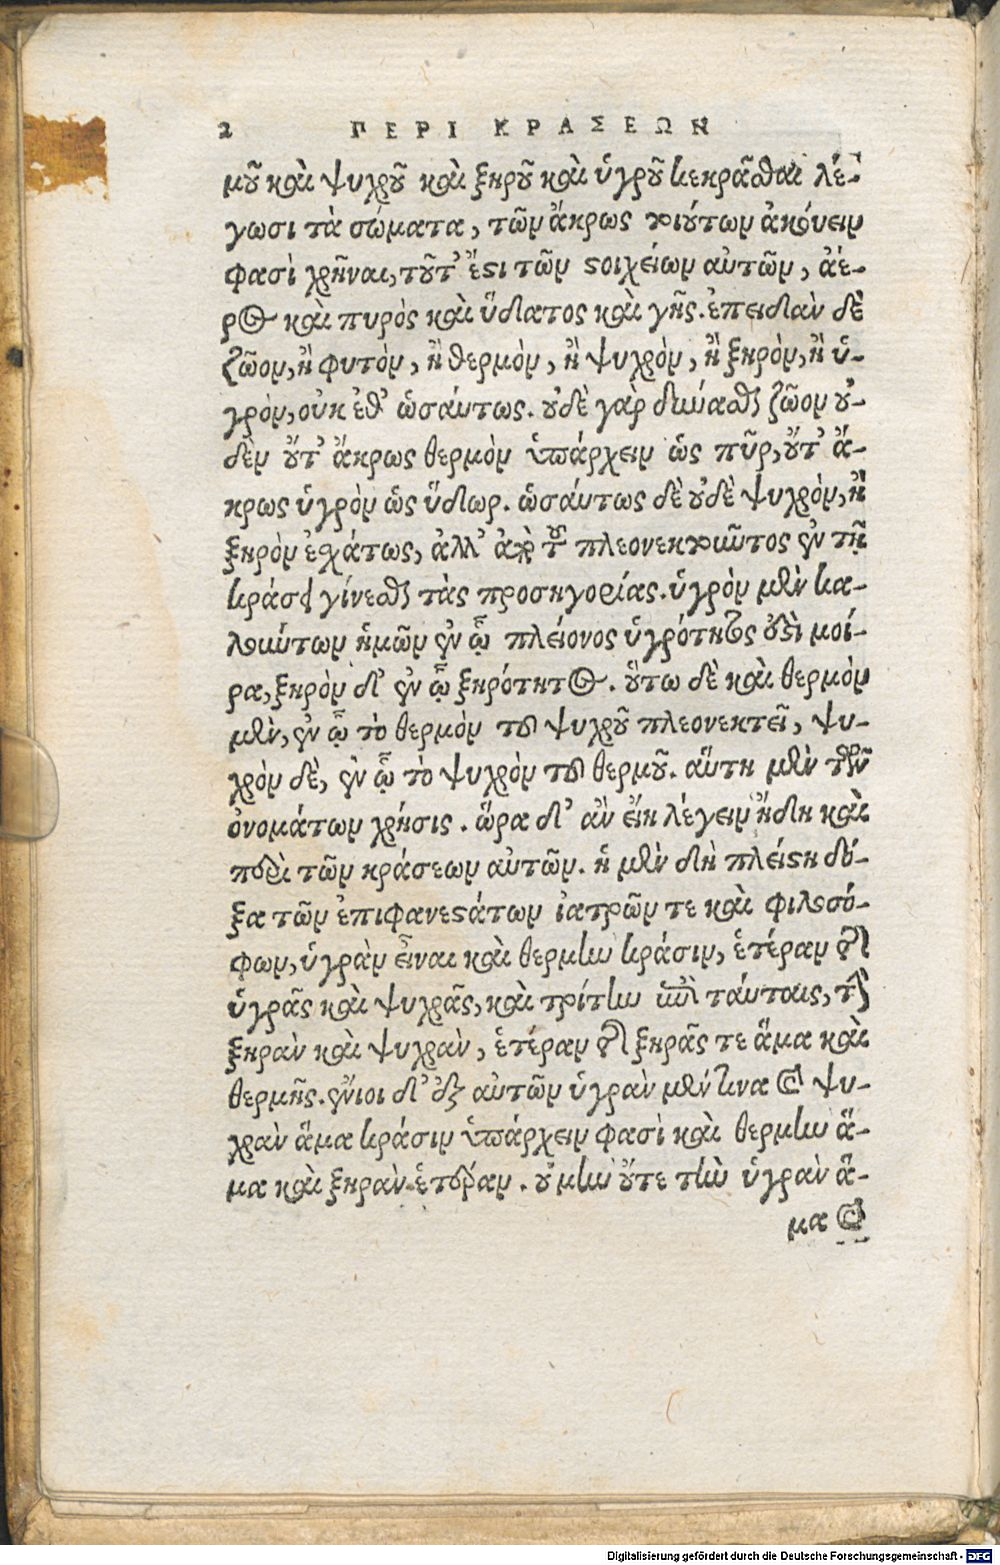 2 ΠΕΡΙ ΚΡΑΣΕΩΝ
μοῦ καὶ ψυχροῦ καὶ ξηροῦ καὶ ὑγροῦ κεκρᾶσθαι λέ-
γωσι τὰ σώματα, τῶν ἄκρως τοιούτων ἀκούειν
φασὶ χρῆναι, τοῦτ’ ἔστι τῶν στοιχείων αὐτῶν, ἀέ-
ρος καὶ πυρὸς καὶ ὕδατος καὶ γῆς. ἐπειδὰν δὲ
ζῶον, ἢ φυτὸν, ἢ θερμὸν, ἢ ψυχρὸν, ἢ ξηρὸν, ἢ ὑ-
γρὸν, οὐκ ἐθ’ ὡσάυτως. οὐδὲ γὰρ δύνασθαι ζῶον οὐ-
δὲν οὔτ’ ἄκρως θερμὸν ὑπάρχειν ὡς πῦρ, οὔτ’ ἄ-
κρως ὑγρὸν ὡς ὕδωρ. ὡσάυτως δὲ οὐδὲ ψυχρὸν, ἢ
ξηρὸν ἐσχάτως, ἀλλ’ ἀπὸ τοῦ πλεονεκτοῦντος ἐν τῇ
κράσει γίνεσθαι τὰς προσηγορίας. ὑγρὸν μὲν κα-
λούντων ἡμῶν ἐν ᾧ πλείονος ὑγρότητος ἐστὶ μοί-
ρα, ξηρὸν δ’ ἐν ᾧ ξηρότητος. οὕτω δὲ καὶ θερμὸν
μὲν, ἐν ᾧ τὸ θερμὸν τοῦ ψυχροῦ πλεονεκτεῖ, ψυ-
χρὸν δὲ, ἐν ᾧ τὸ ψυχρὸν τοῦ θερμοῦ. αὕτη μὲν τῶν
ὀνομάτων χρῆσις. ὥρα δ’ ἂν εἴη λέγειν ἤδη καὶ
περὶ τῶν κράσεων αὐτῶν. ἡ μὲν δὴ πλείστη δό-
ξα τῶν ἐπιφανεστάτων ἰατρῶν τε καὶ φιλοσό-
φων, ὑγρὰν εἶναι καὶ θερμὴν κράσιν, ἑτέραν δὲ
ὑγρᾶς καὶ ψυχρᾶς, καὶ τρίτην ἐπὶ ταύταις, τὴν
ξηρὰν καὶ ψυχρὰν, ἑτέραν δὲ ξηρᾶς τε ἅμα καὶ
θερμῆς. ἔνιοι δ’ ἐξ αὐτῶν ὑγρὰν μέν τινα καὶ ψυ-
χρὰν ἅμα κράσιν ὑπάρχειν φασὶ καὶ θερμὴν ἅ-
μα καὶ ξηρὰν ἑτέραν. οὐ μὴν οὔτε τὴν ὑγρὰν ἅ-
μα καὶ
Digitalisierung gefördert durch die Deutsche Forschungsgemeinschaft - DFG